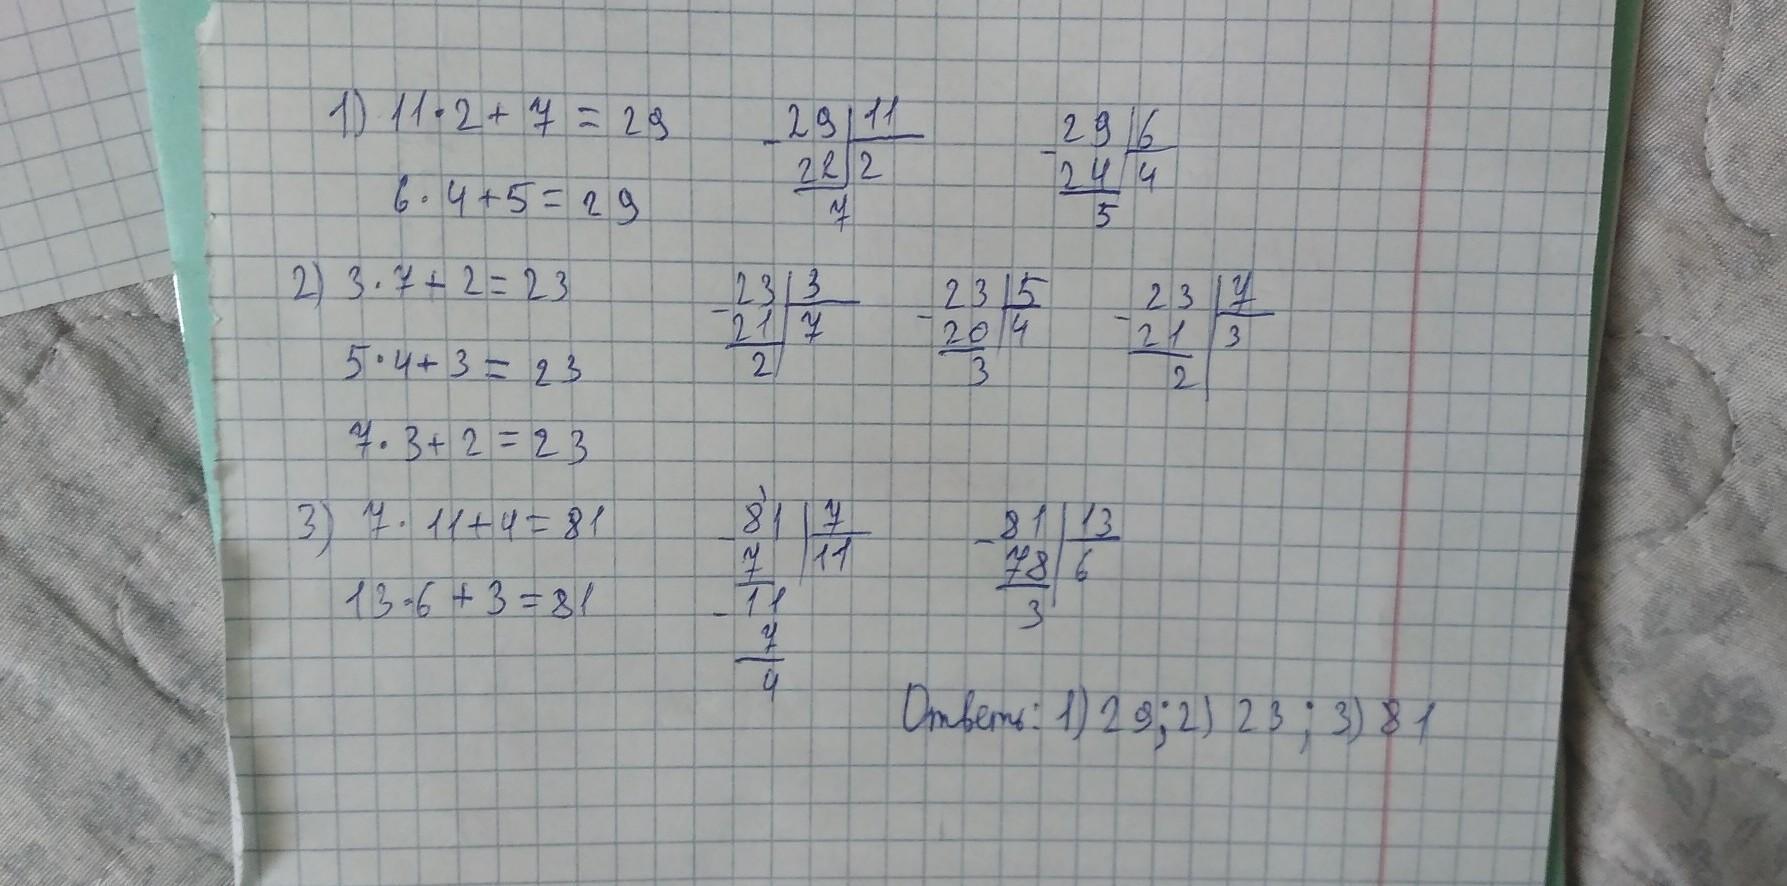 1) 11·2+7=29
29 | 11
- 22 | 2
7
29 | 6
- 24 | 4
5
6·4+5=29
2) 3·7+2=23
23 | 3
- 21 | 7
2
23 | 5
- 20 | 4
3
23 | 7
- 21 | 3
2
5·4+3=23
7·3+2=23
3) 7·11+4=81
81 | 7
- 7 | 11
- 11
7
4
81 | 13
- 78 | 6
3
13·6+3=81
Ответ: 1) 29; 2) 23; 3) 81